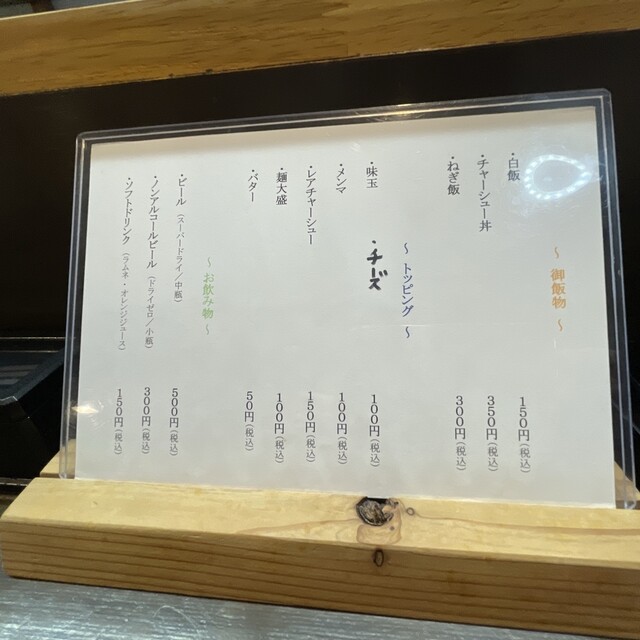 ～ 御飯物 ～
・白飯 150円(税込)
・チャーシュー丼 350円(税込)
・ねぎ飯 300円(税込)
～ トッピング ～
・味玉 100円(税込)
・チーズ
・メンマ 100円(税込)
・レアチャーシュー 150円(税込)
・麺大盛 100円(税込)
・バター 50円(税込)
～ お飲み物 ～
・ビール (スーパードライ／中瓶) 500円(税込)
・ノンアルコールビール (ドライゼロ／小瓶) 300円(税込)
・ソフトドリンク (ラムネ・オレンジジュース) 150円(税込)